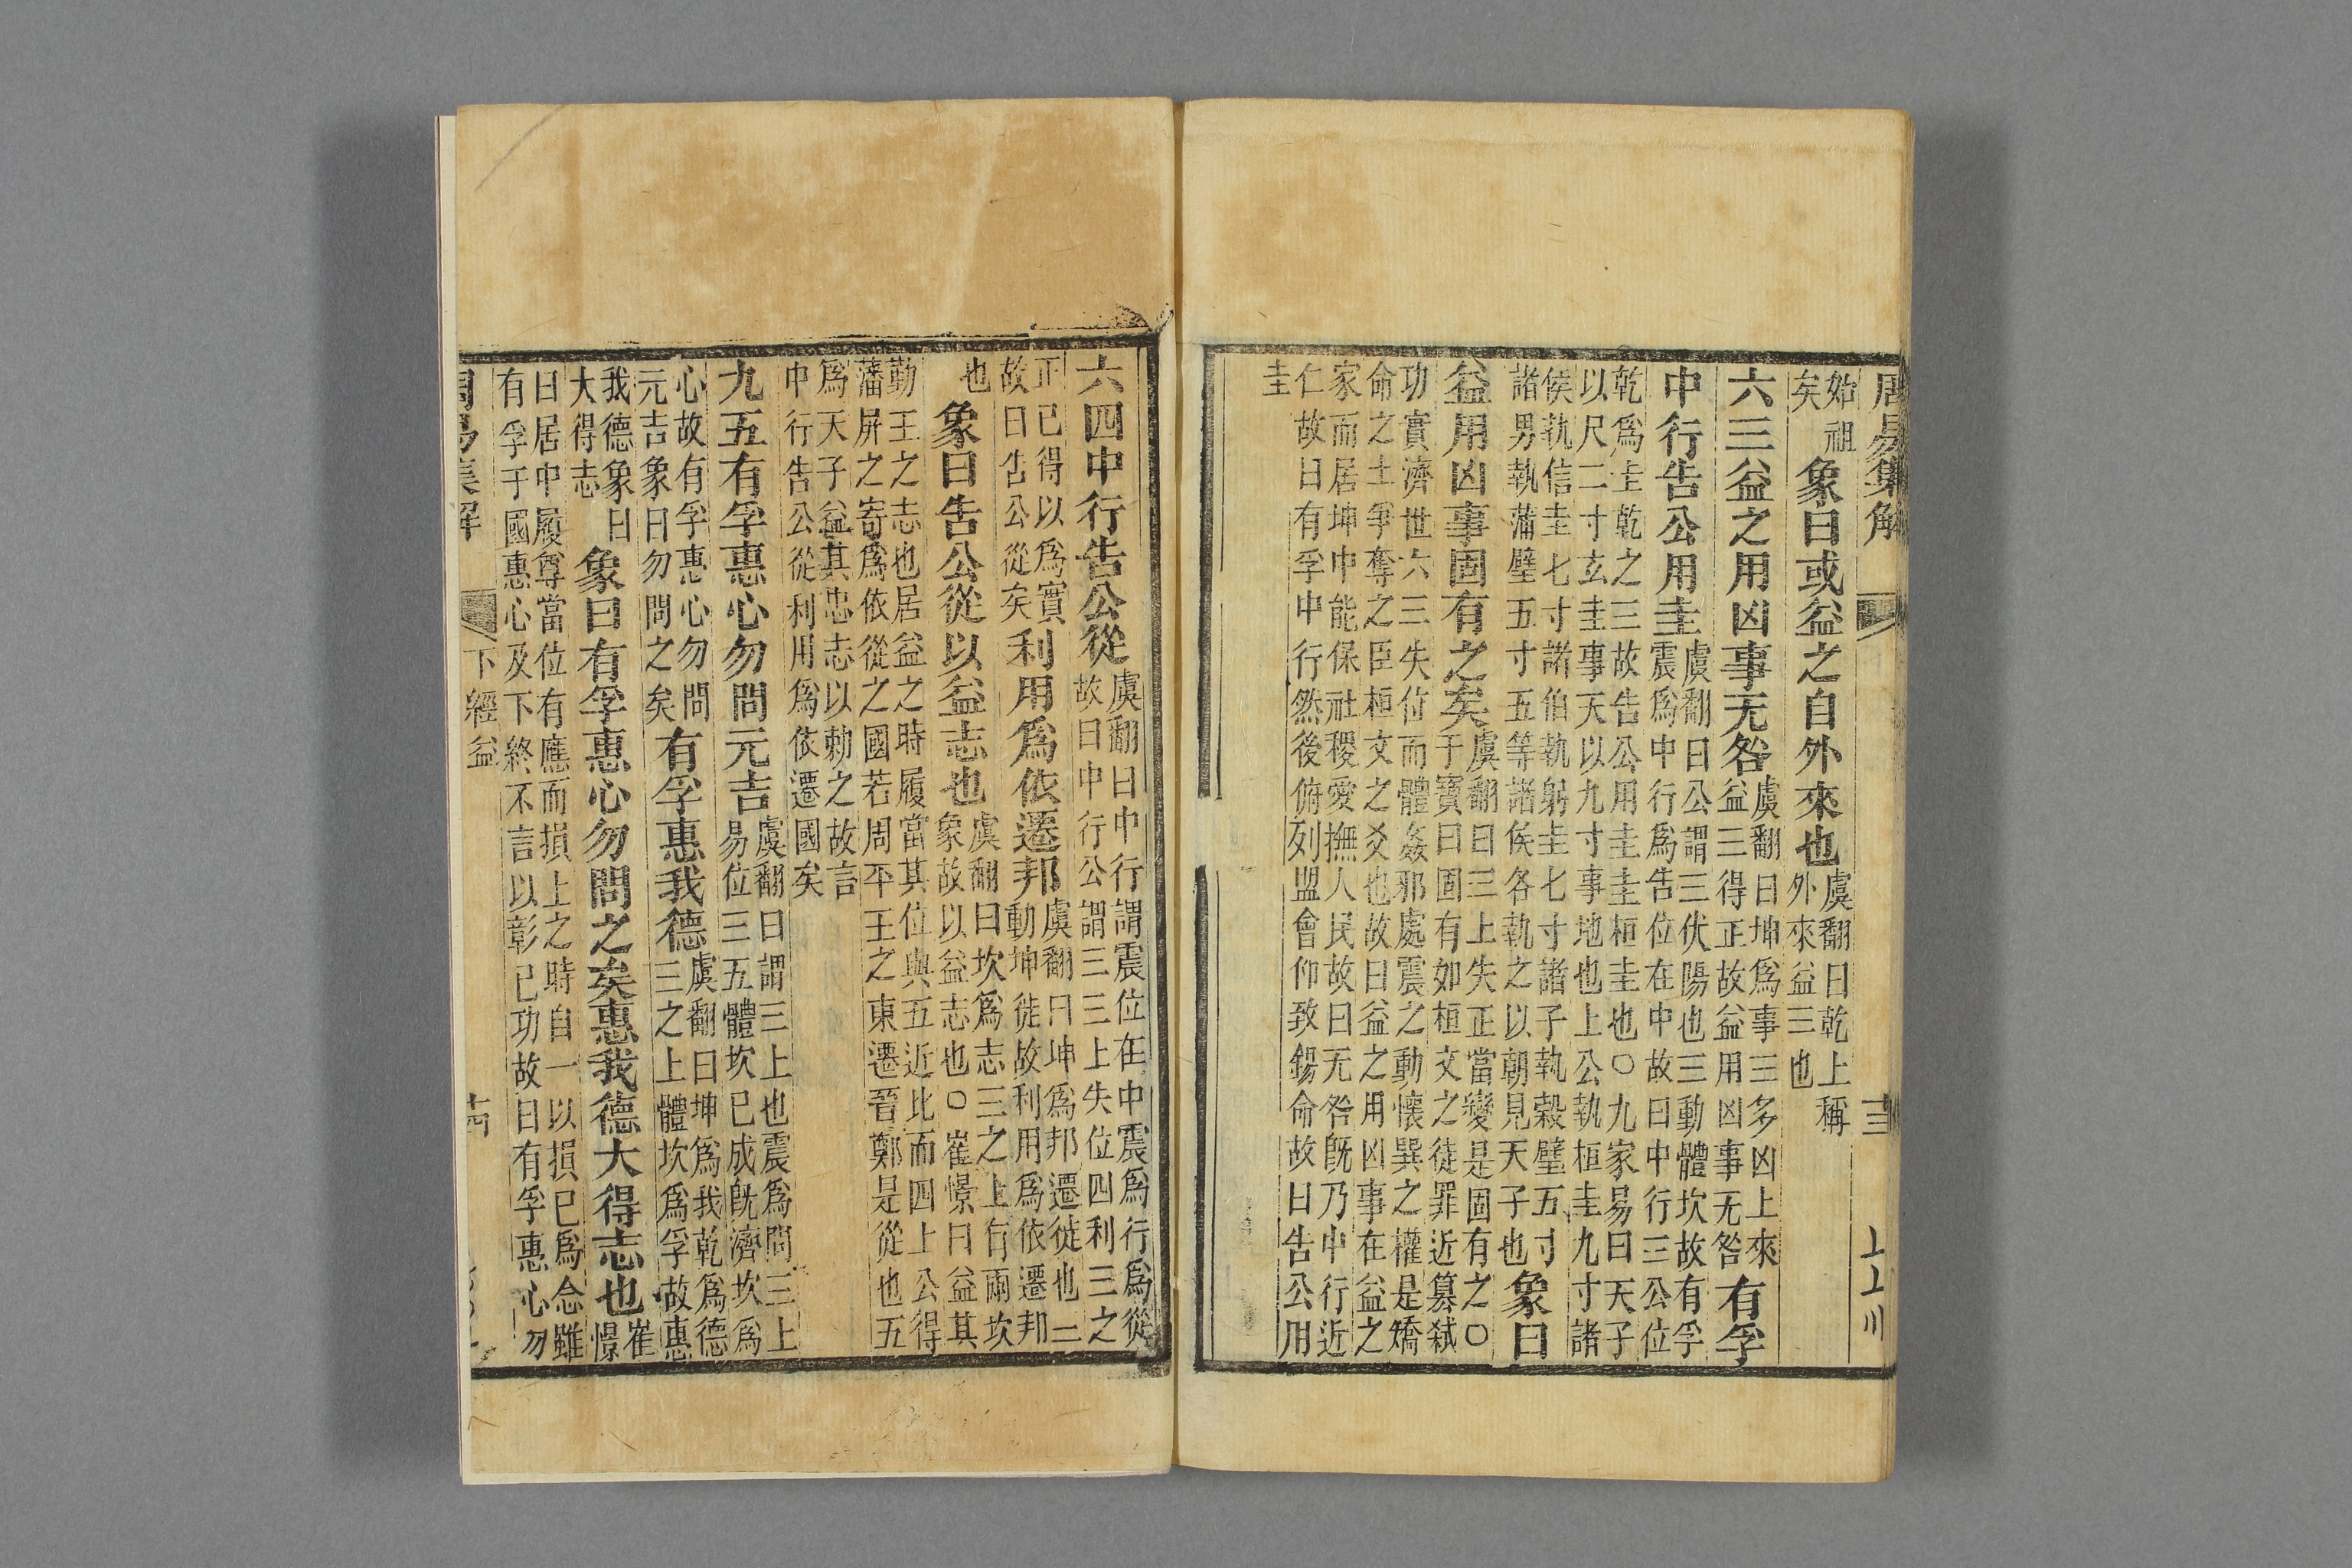 周易集解 十三
始祖
矣 象曰或益之自外來也 虞翻曰乾上稱
外來益三也
六三益之用凶事无咎 虞翻曰坤爲事三多凶上來
益三得正故益用凶事无咎 有孚
中行告公用圭 虞翻曰公謂三伏陽也三動體坎故有孚
震爲中行爲告位在中故曰中行三公位
乾爲圭乾之三故告公用圭圭桓圭也○九家易曰天子
以尺二寸玄圭事天以九寸事地也上公執桓圭九寸諸
侯執信圭七寸諸伯執躬圭七寸諸子執穀璧五寸
諸男執蒲璧五寸五等諸侯各執之以朝見天子也 象曰
益用凶事固有之矣 虞翻曰三上失正當變是固有之○
于寶曰固有如桓文之徒罪近篡弒
功實濟世六三失位而體姦邪處震之動懷巽之權是矯
命之士爭奪之臣桓文之爻也故曰益之用凶事在益之
家而居坤中能保社稷愛撫人民故曰无咎旣乃中行近
仁故曰有孚中行然後俯列盟會仰致錫命故曰告公用
圭
六四中行告公從 虞翻曰中行謂震位在中震爲行爲從
故曰中行公謂三三上失位四利三之
正已得以爲實
故曰告公從矣 利用爲依遷邦 虞翻曰坤爲邦遷徙也三
動坤徙故利用爲依遷邦
也 象曰告公從以益志也 虞翻曰坎爲志三之上有兩坎
象故以益志也○崔憬曰益其
勤王之志也居益之時履當其位與五近比而四上公得
藩屏之寄爲依從之國若周平王之東遷晉鄭是從也五
爲天子益其忠志以勑之故言
中行告公從利用爲依遷國矣
九五有孚惠心勿問元吉 虞翻曰謂三上也震爲問三上
易位三五體坎已成旣濟坎爲
心故有孚惠心勿問
元吉象曰勿問之矣 有孚惠我德 虞翻曰坤爲我乾爲德
三之上體坎爲孚故惠
我德象曰
大得志 象曰有孚惠心勿問之矣惠我德大得志也 崔
憬
曰居中履尊當位有應而損上之時自一以損已爲念雖
有孚于國惠心及下終不言以彰已功故曰有孚惠心勿
周易集解 下經益 十四